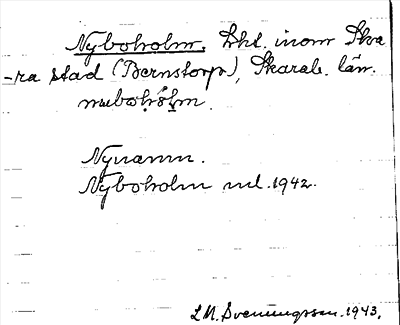 Nyboholm. Lht. inom Ska
-ra stad (Bernstorp), Skarab. län.
Nynamn.
Nyboholm ml. 1942.
L.M. Svenungsson. 1943.